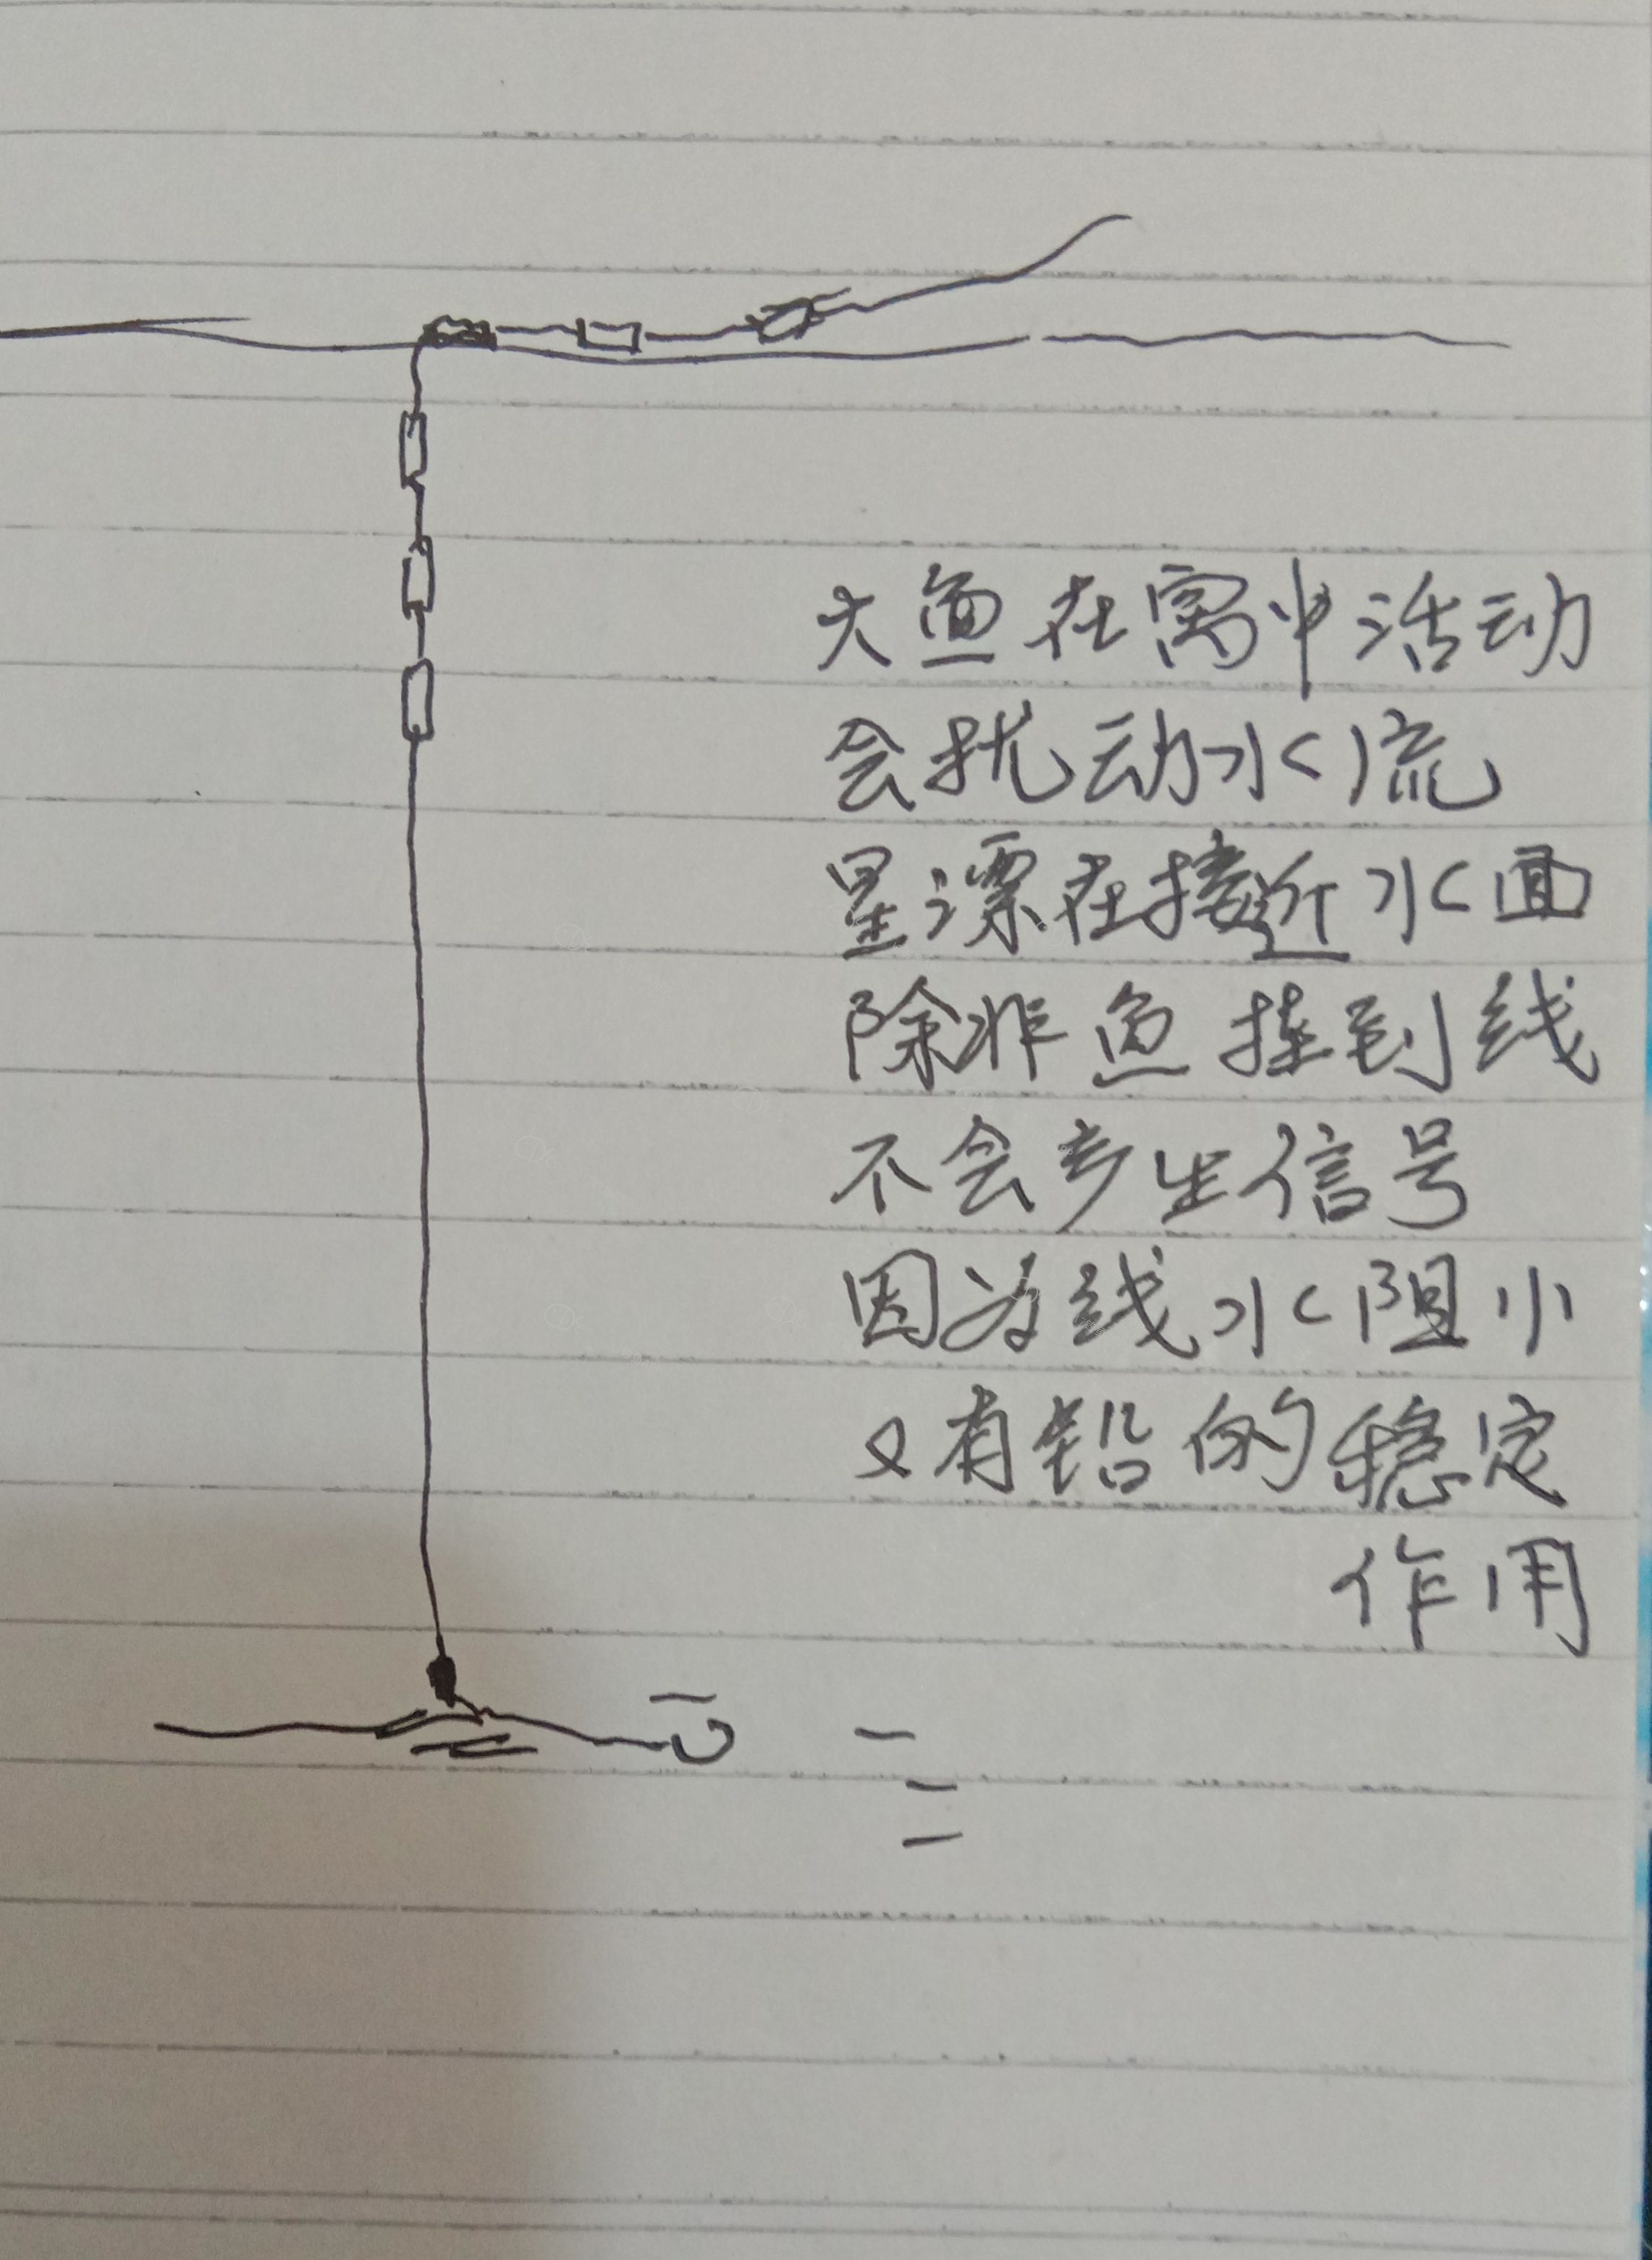 大鱼在窝中活动
会扰动水流
星漂在接近水面
除非鱼撞到线
不会产生信号
因为线水阻小
又有铅的稳定
作用